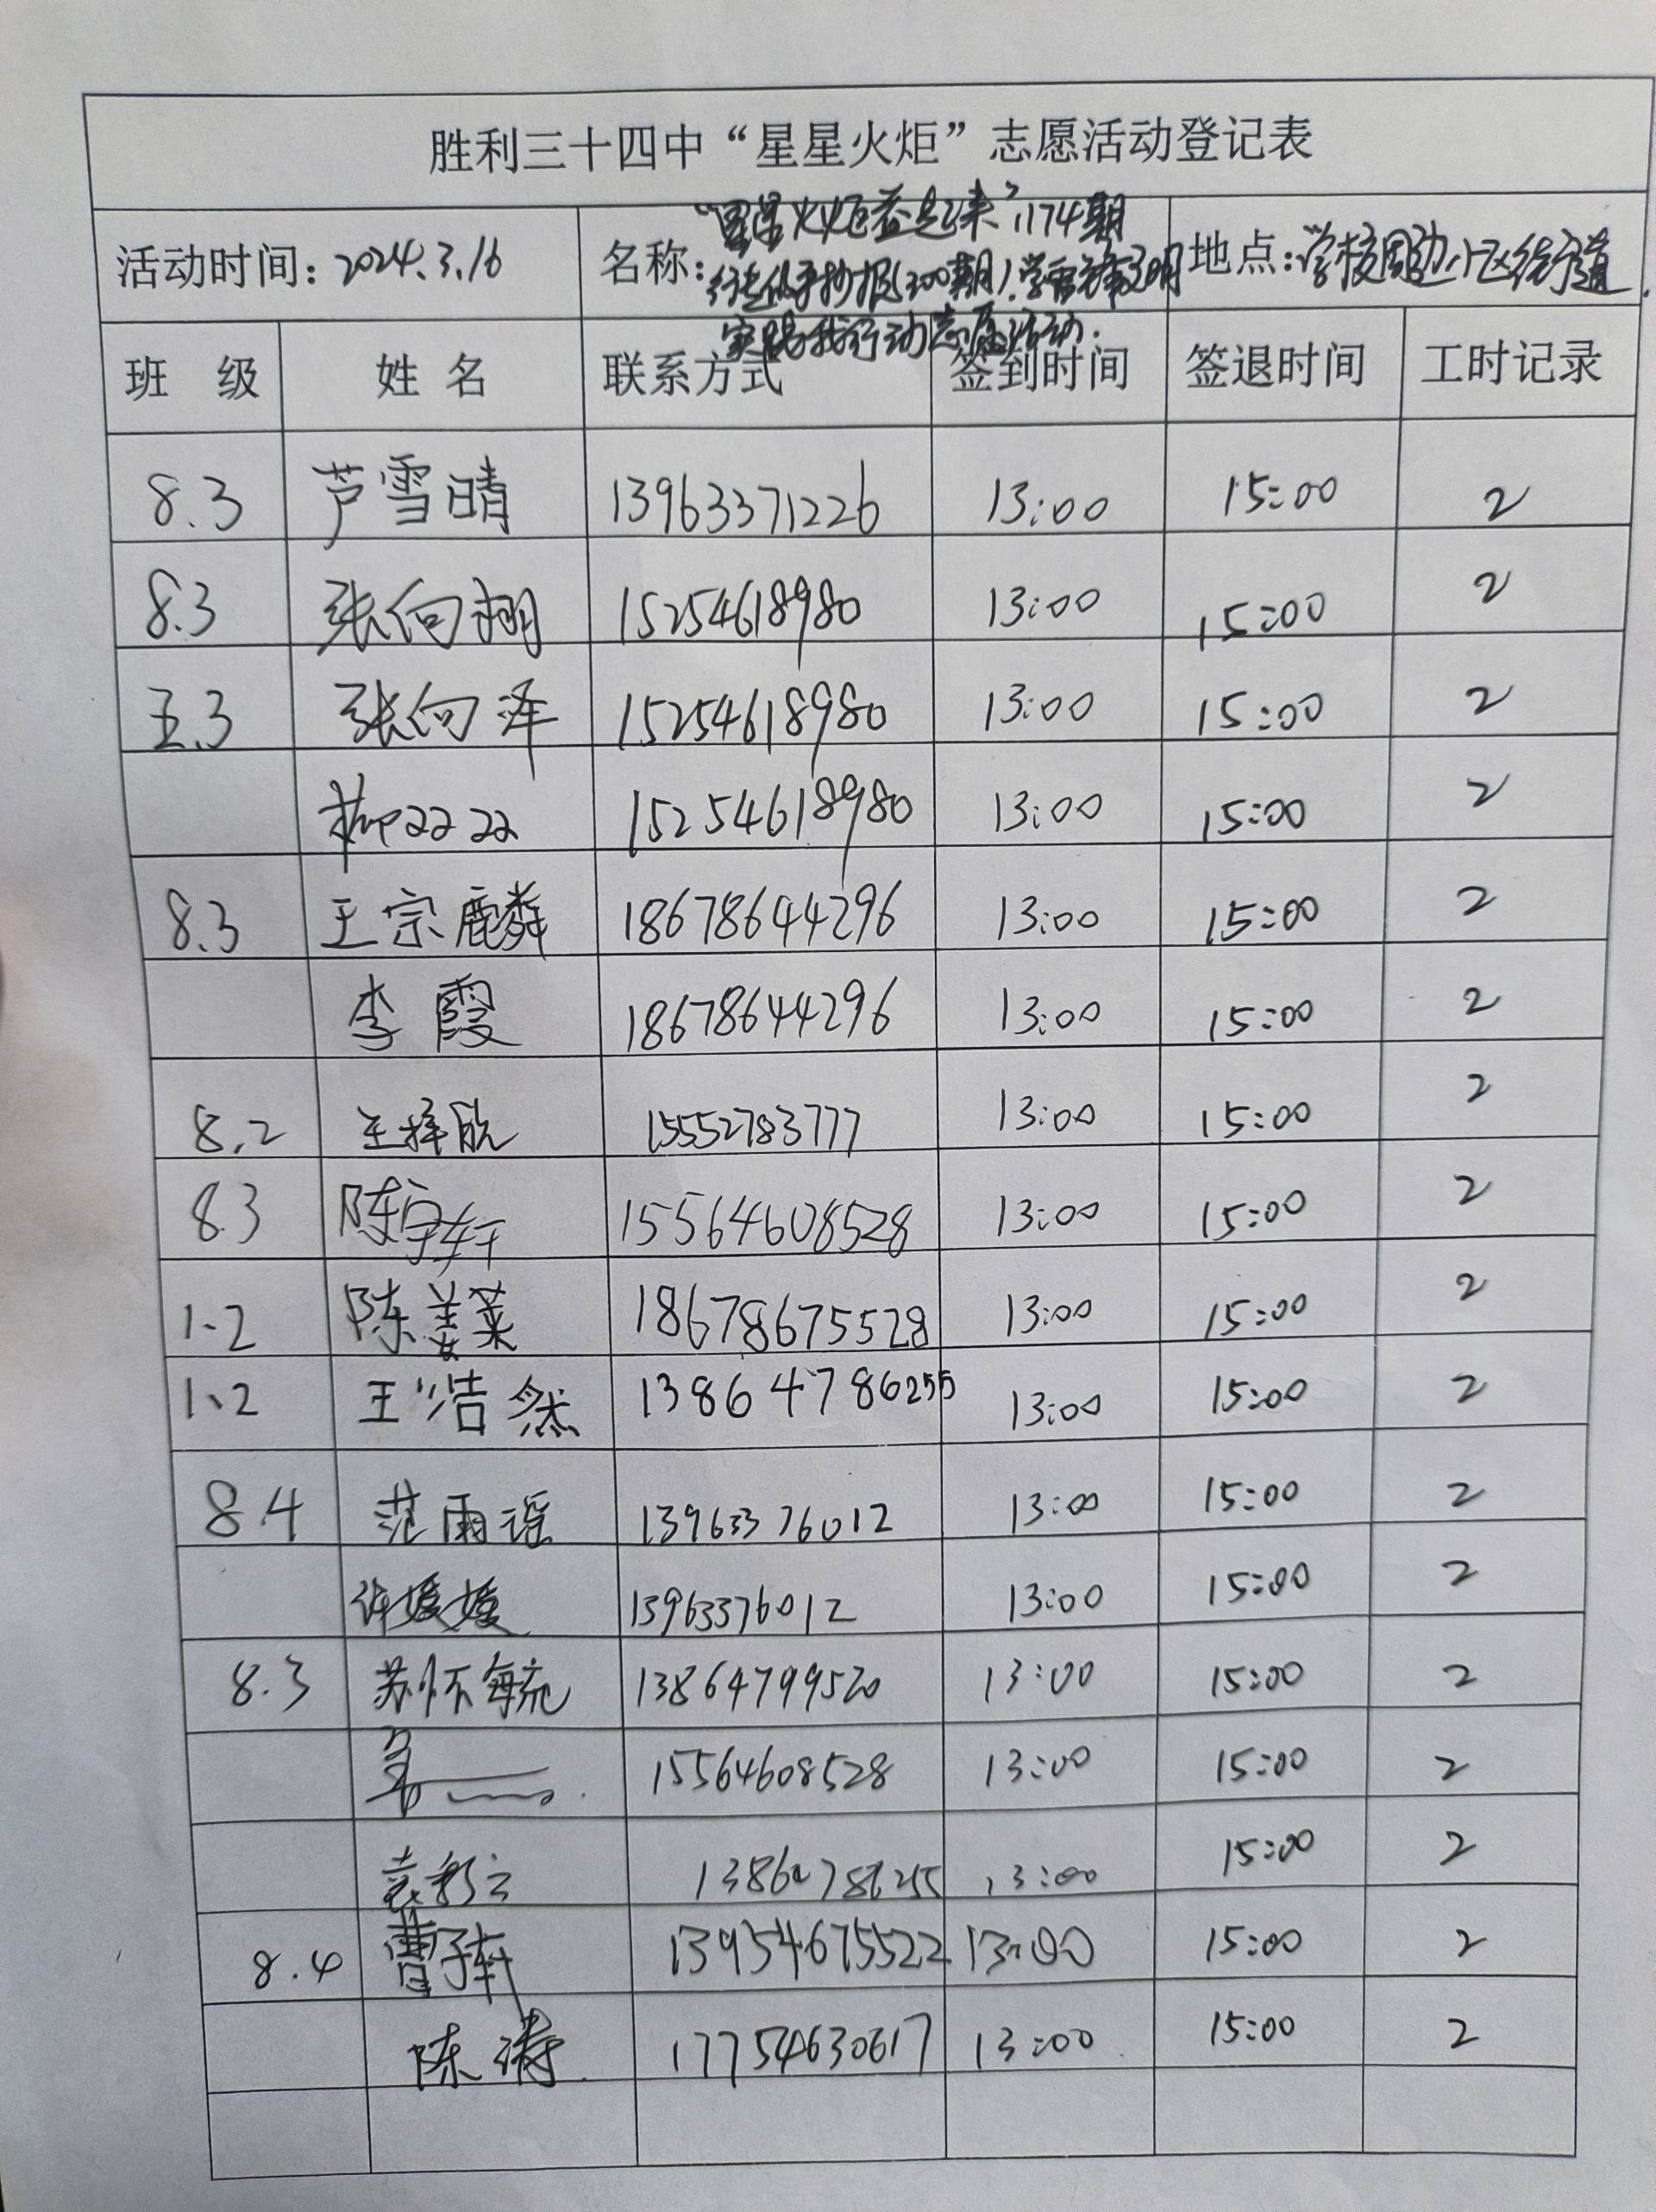 胜利三十四中“星星火炬”志愿活动登记表
活动时间：2024.3.16 名称：“星星火炬益起来”1174期 地点：学校周边小区街道.
手抄报(300期)学雷锋文明
实践我行动志愿活动.
班 级 姓 名 联系方式 签到时间 签退时间 工时记录
8.3 芦雪晴 13963371226 13:00 15:00 2
8.3 张向翊 15254618980 13:00 15:00 2
五.3 张向泽 15254618980 13:00 15:00 2
15254618980 13:00 15:00 2
8.3 王宗麟 18678644296 13:00 15:00 2
李霞 18678644296 13:00 15:00 2
8.2 王择航 15552783777 13:00 15:00 2
8.3 陈宇轩 15564608528 13:00 15:00 2
1、2 陈姜莱 18678675528 13:00 15:00 2
1、2 王浩然 13864786255 13:00 15:00 2
8.4 范雨谣 13963376012 13:00 15:00 2
许媛媛 13963376012 13:00 15:00 2
8.3 苏怀毓 13864799520 13:00 15:00 2
15564608528 13:00 15:00 2
袁彩云 13864786255 13:00 15:00 2
8.4 曹子轩 13954675522 13:00 15:00 2
陈涛 17754630617 13:00 15:00 2